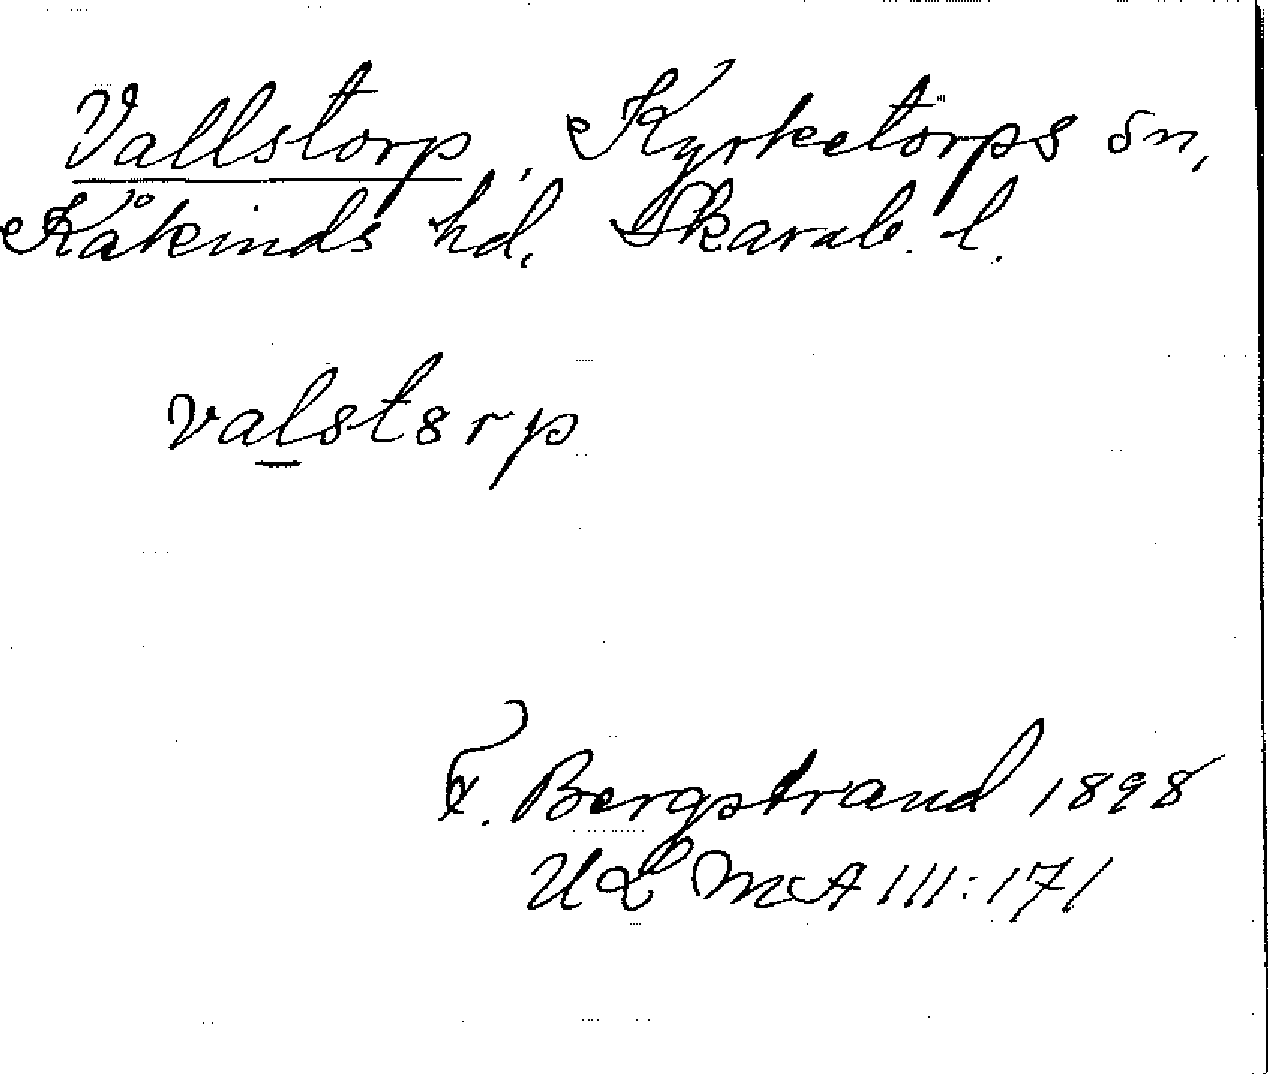 Vallstorp, Kyrketorps sn,
Kåkinds hd, Skarab. l.
valst8rp
F. Bergstrand 1898
ULMA 111:171